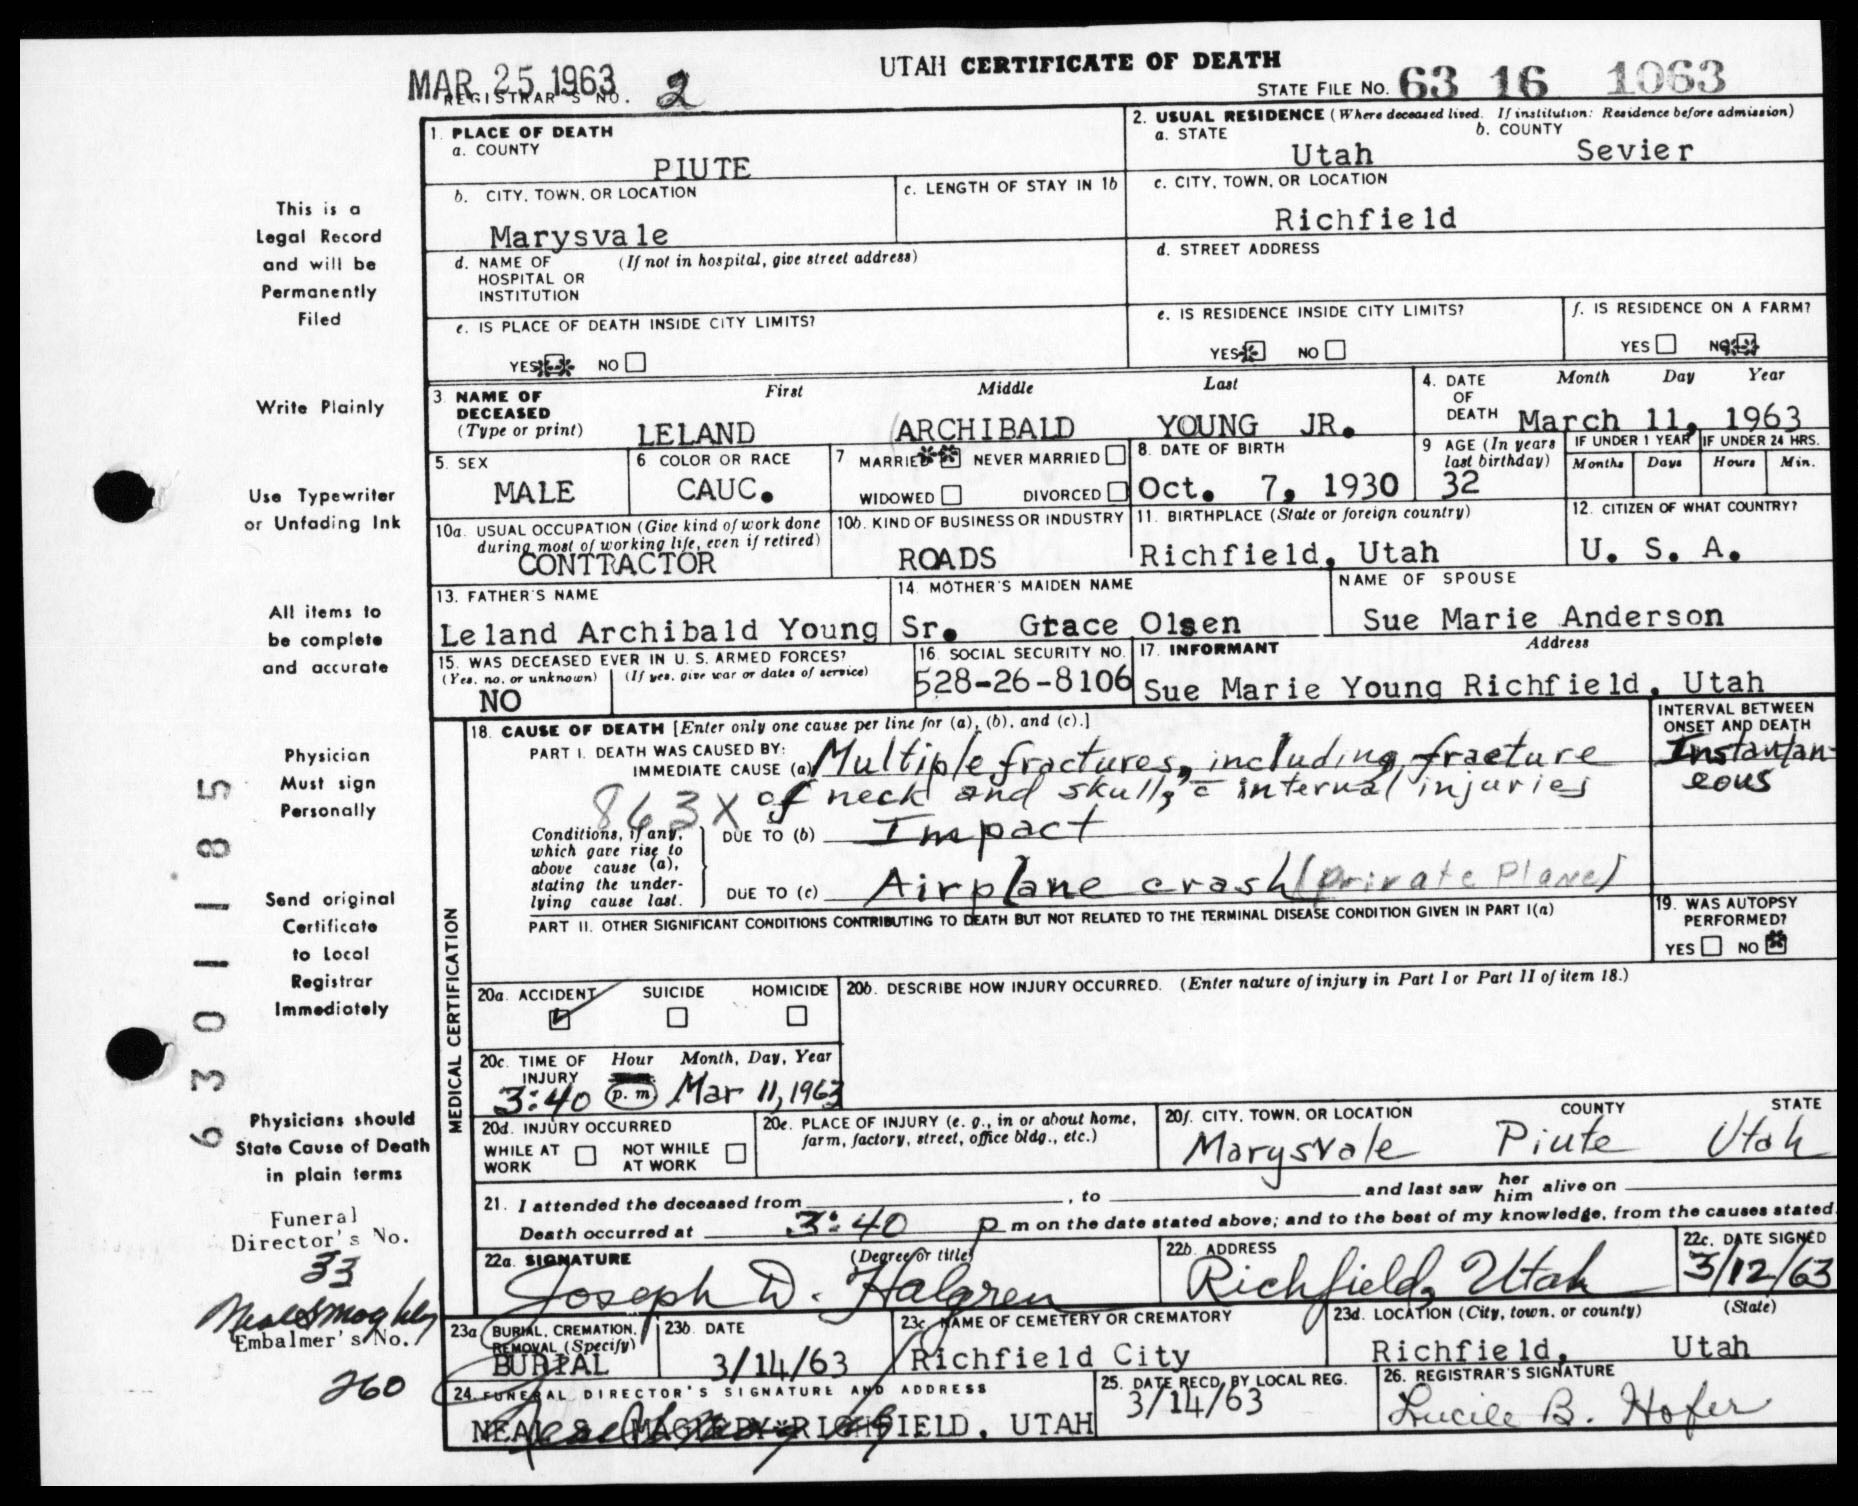 UTAH CERTIFICATE OF DEATH
MAR 25 1963
REGISTRAR'S NO. 2
STATE FILE NO. 63 16 1063
1. PLACE OF DEATH
a. COUNTY
PIUTE
2. USUAL RESIDENCE (Where deceased lived. If institution: Residence before admission)
a. STATE b. COUNTY
Utah Sevier
b. CITY, TOWN, OR LOCATION
Marysvale
c. LENGTH OF STAY IN 1b
c. CITY, TOWN, OR LOCATION
Richfield
d. NAME OF (If not in hospital, give street address)
HOSPITAL OR
INSTITUTION
d. STREET ADDRESS
e. IS PLACE OF DEATH INSIDE CITY LIMITS?
YES NO
e. IS RESIDENCE INSIDE CITY LIMITS?
YES NO
f. IS RESIDENCE ON A FARM?
YES NO
3. NAME OF
DECEASED
(Type or print)
First Middle Last
LELAND ARCHIBALD YOUNG JR.
4. DATE
OF
DEATH
Month Day Year
March 11, 1963
5. SEX
MALE
6 COLOR OR RACE
CAUC.
7 MARRIED NEVER MARRIED
WIDOWED DIVORCED
8. DATE OF BIRTH
Oct. 7, 1930
9 AGE (In years
last birthday)
32
IF UNDER 1 YEAR IF UNDER 24 HRS.
Months Days Hours Min.
10a. USUAL OCCUPATION (Give kind of work done
during most of working life, even if retired)
CONTRACTOR
10b. KIND OF BUSINESS OR INDUSTRY
ROADS
11. BIRTHPLACE (State or foreign country)
Richfield, Utah
12. CITIZEN OF WHAT COUNTRY?
U. S. A.
13. FATHER'S NAME
Leland Archibald Young Sr.
14. MOTHER'S MAIDEN NAME
Grace Olsen
NAME OF SPOUSE
Sue Marie Anderson
15. WAS DECEASED EVER IN U. S. ARMED FORCES?
(Yes, no, or unknown) (If yes, give war or dates of service)
NO
16. SOCIAL SECURITY NO.
528-26-8106
17. INFORMANT Address
Sue Marie Young Richfield, Utah
MEDICAL CERTIFICATION
18. CAUSE OF DEATH [Enter only one cause per line for (a), (b), and (c).]
PART I. DEATH WAS CAUSED BY:
IMMEDIATE CAUSE (a) Multiple fractures, including fracture
863X of neck and skull, c̄ internal injuries
Conditions, if any,
which gave rise to
above cause (a),
stating the under-
lying cause last.
DUE TO (b) Impact
DUE TO (c) Airplane crash (private Plane)
INTERVAL BETWEEN
ONSET AND DEATH
Instantan-
eous
PART II. OTHER SIGNIFICANT CONDITIONS CONTRIBUTING TO DEATH BUT NOT RELATED TO THE TERMINAL DISEASE CONDITION GIVEN IN PART I(a)
19. WAS AUTOPSY
PERFORMED?
YES NO
20a. ACCIDENT SUICIDE HOMICIDE
20b. DESCRIBE HOW INJURY OCCURRED. (Enter nature of injury in Part I or Part II of item 18.)
20c. TIME OF Hour Month, Day, Year
INJURY
3:40 p. m Mar 11, 1963
20d. INJURY OCCURRED
WHILE AT WORK NOT WHILE AT WORK
20e. PLACE OF INJURY (e. g., in or about home,
farm, factory, street, office bldg., etc.)
20f. CITY, TOWN, OR LOCATION COUNTY STATE
Marysvale Piute Utah
21. I attended the deceased from , to and last saw her him alive on
Death occurred at 3:40 p m on the date stated above; and to the best of my knowledge, from the causes stated.
22a. SIGNATURE (Degree or title)
Joseph D. Halgren
22b. ADDRESS
Richfield, Utah
22c. DATE SIGNED
3/12/63
23a BURIAL, CREMATION,
REMOVAL (Specify)
BURIAL
23b. DATE
3/14/63
23c. NAME OF CEMETERY OR CREMATORY
Richfield City
23d. LOCATION (City, town, or county) (State)
Richfield, Utah
24. FUNERAL DIRECTOR'S SIGNATURE AND ADDRESS
NEAL S. MAGLEBY RICHFIELD, UTAH
25. DATE RECD. BY LOCAL REG.
3/14/63
26. REGISTRAR'S SIGNATURE
Lucile B. Hofer
This is a
Legal Record
and will be
Permanently
Filed
Write Plainly
Use Typewriter
or Unfading Ink
All items to
be complete
and accurate
Physician
Must sign
Personally
Send original
Certificate
to Local
Registrar
Immediately
Physicians should
State Cause of Death
in plain terms
Funeral
Director's No.
33
Neal S Magleby
Embalmer's No.
260
6301185